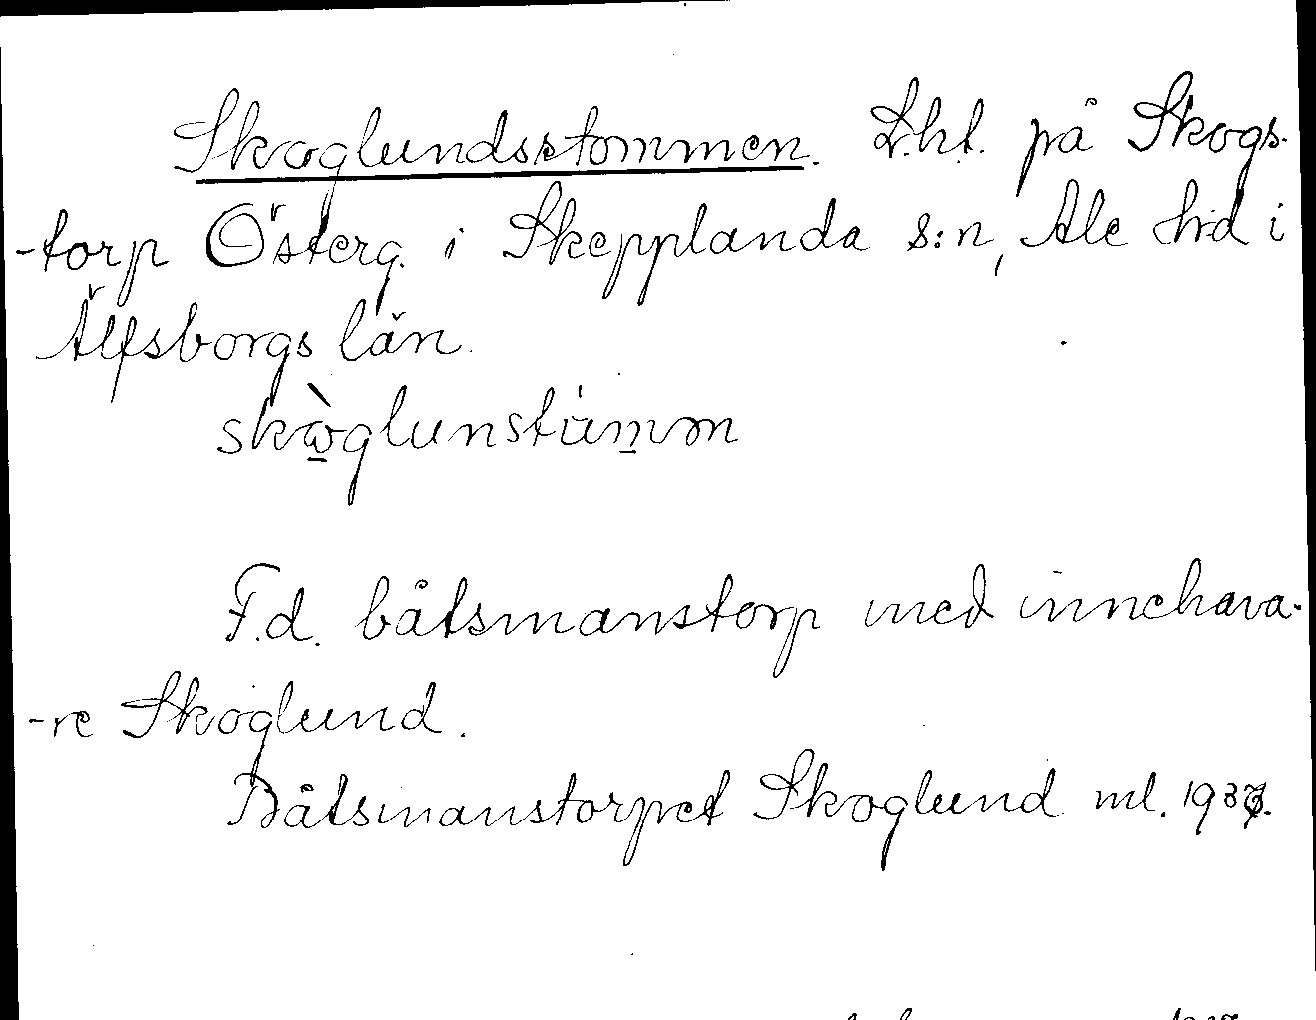 Skoglundsstommen. L.ht. på Skogs-
-torp Österg. i Skepplanda s:n, Ale hd i
Älfsborgs län.
F.d. båtsmanstorp med innehava-
-re Skoglund.
Båtsmanstorpet Skoglund ml.